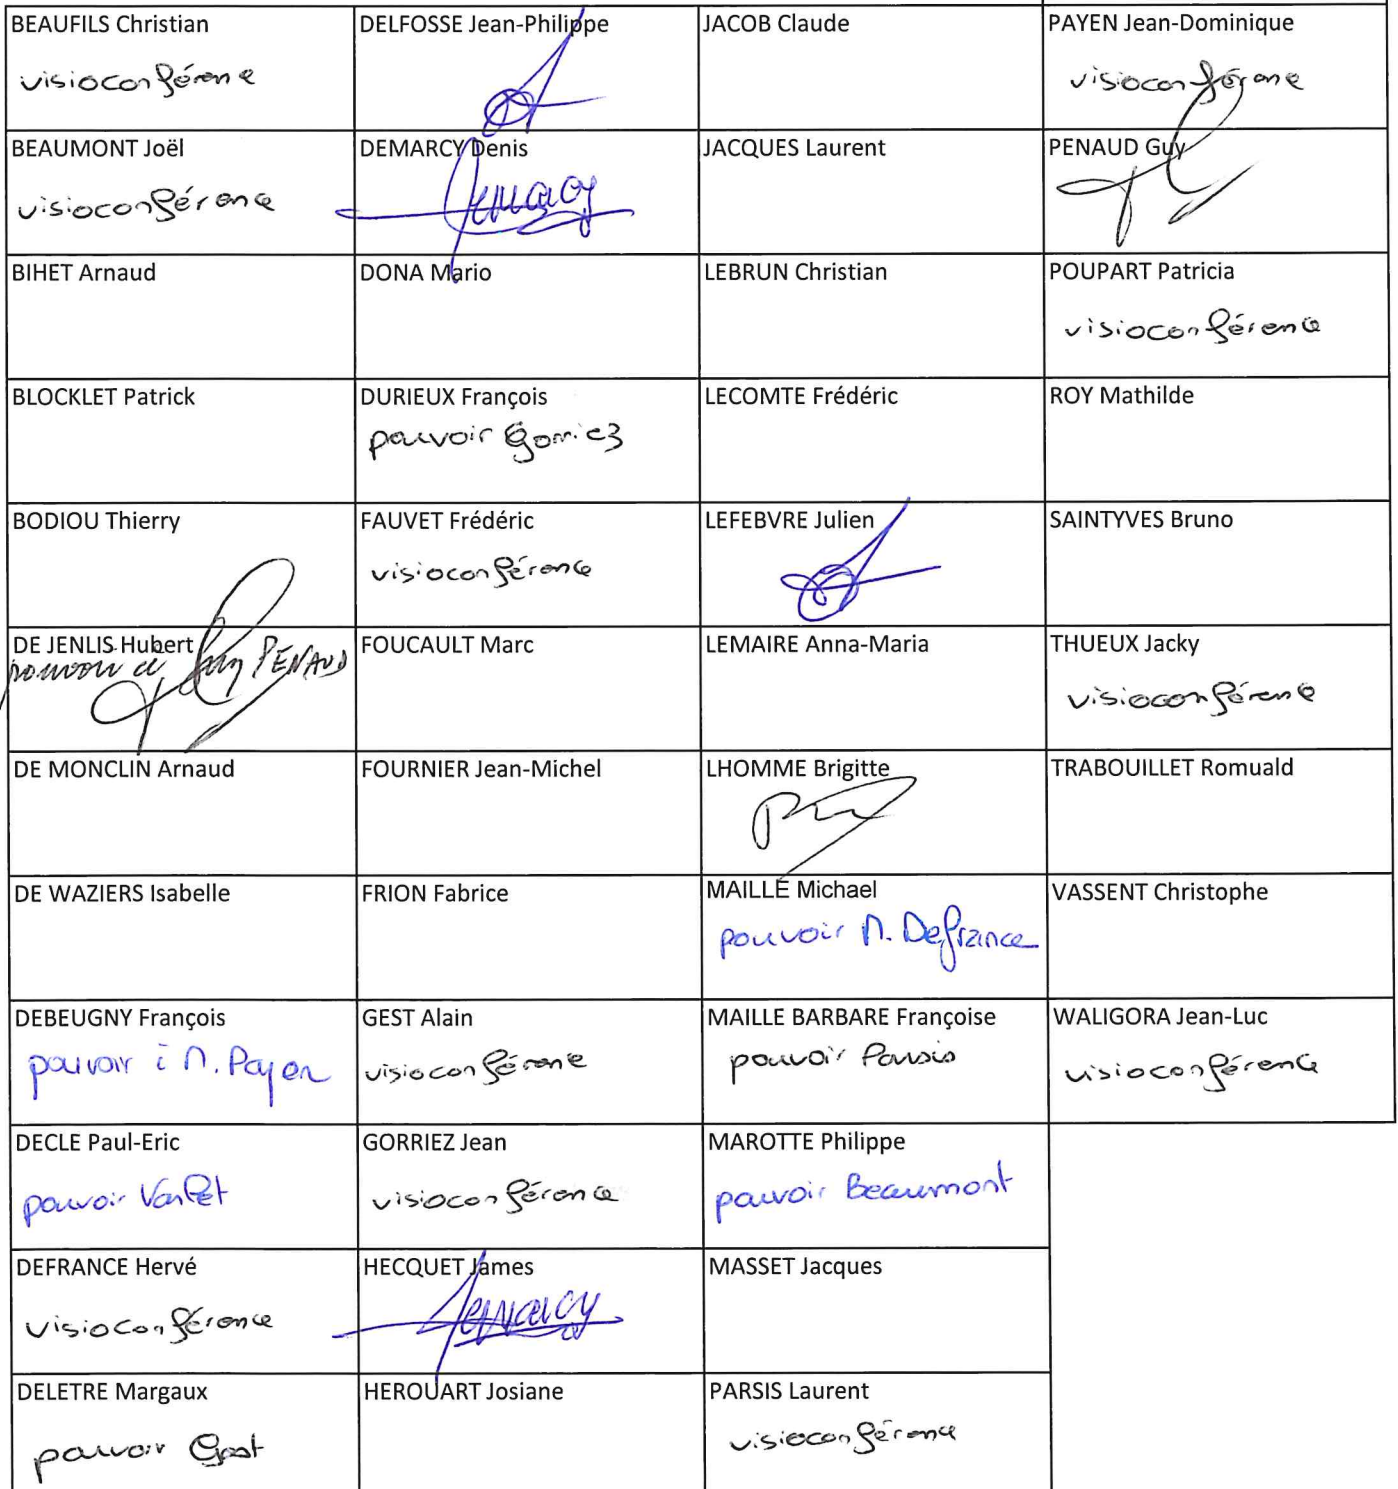 BEAUFILS Christian
visioconférence
DELFOSSE Jean-Philippe
JACOB Claude
PAYEN Jean-Dominique
visioconférence
BEAUMONT Joël
visioconférence
DEMARCY Denis
Demarcy
JACQUES Laurent
PENAUD Guy
BIHET Arnaud
DONA Mario
LEBRUN Christian
POUPART Patricia
visioconférence
BLOCKLET Patrick
DURIEUX François
pouvoir Gorriez
LECOMTE Frédéric
ROY Mathilde
BODIOU Thierry
FAUVET Frédéric
visioconférence
LEFEBVRE Julien
SAINTYVES Bruno
DE JENLIS Hubert
pouvoir à Guy PENAUD
FOUCAULT Marc
LEMAIRE Anna-Maria
THUEUX Jacky
visioconférence
DE MONCLIN Arnaud
FOURNIER Jean-Michel
LHOMME Brigitte
TRABOUILLET Romuald
DE WAZIERS Isabelle
FRION Fabrice
MAILLE Michael
pouvoir M. Defrance
VASSENT Christophe
DEBEUGNY François
pouvoir à M. Payen
GEST Alain
visioconférence
MAILLE BARBARE Françoise
pouvoir Parsis
WALIGORA Jean-Luc
visioconférence
DECLE Paul-Eric
pouvoir
GORRIEZ Jean
visioconférence
MAROTTE Philippe
pouvoir Beaumont
DEFRANCE Hervé
visioconférence
HECQUET James
Demarcy
MASSET Jacques
DELETRE Margaux
pouvoir Gest
HEROUART Josiane
PARSIS Laurent
visioconférence